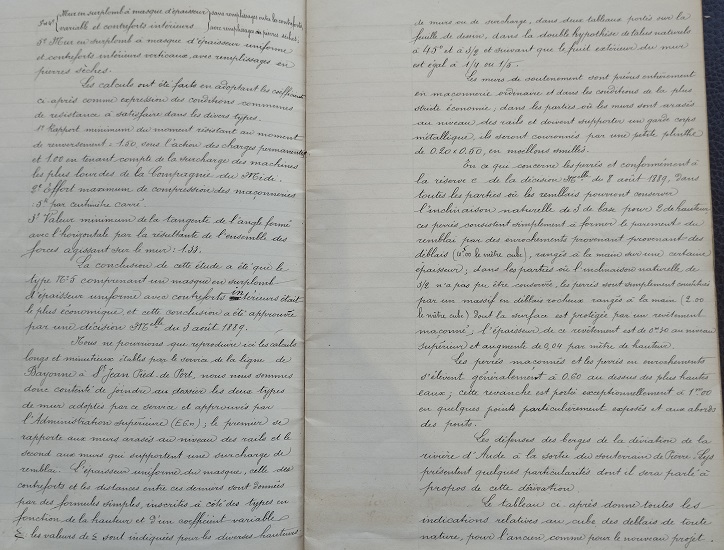 Mur en surplomb à masque d'épaisseur { sans remplissages entre les contreforts,
3° et 4° variable et contreforts intérieurs. { avec remplissages en pierres sèches;
5° Mur en surplomb à masque d'épaisseur uniforme
et contreforts intérieurs verticaux, avec remplissages en
pierres sèches.
Les calculs ont été faits en adoptant les coefficients
ci après comme expression des conditions communes
de résistance à satisfaire dans les divers types.
1° Rapport minimum du moment résistant au moment
de renversement: 1.50, sous l'action des charges permanentes
et 1.00 en tenant compte de la surcharge des machines
les plus lourdes de la Compagnie du Midi.
2° Effort maximum de compression des maçonneries
: 5k par centimètre carré.
3° Valeur minimum de la tangente de l'angle formé
avec l'horizontale par la résultante de l'ensemble des
forces agissant sur le mur: 1.33.
La conclusion de cette étude a été que le
type N° 5 comprenant un masque en surplomb
d'épaisseur uniforme avec contreforts intérieurs était
le plus économique et cette conclusion a été approuvée
par une décision Mlle du 3 août 1889.
Nous ne pouvions que reproduire ici les calculs
longs et minutieux établis par le service de la ligne de
Bayonne à St Jean Pied de Port, nous nous sommes
donc contenté de joindre au dossier les deux types
de mur adoptés par ce service et approuvés par
l'Administration supérieure (E6n); le premier se
rapporte aux murs arasés au niveau des rails et le
second aux murs qui supportent une surcharge de
remblai. L'épaisseur uniforme du masque, celle des
contreforts et les distances entre ces derniers sont données
par des formules simples, inscrites à côté des types en
fonction de la hauteur et d'un coefficient variable
les valeurs de sont indiquées pour les diverses hauteurs
de murs ou de surcharge, dans deux tableaux portés sur la
feuille de dessin, dans la double hypothèse de talus naturels
à 45° et à 3/2 et suivant que le fruit extérieur du mur
est égal à 1/4 ou 1/5.
Les murs de soutènement sont prévus entièrement
en maçonnerie ordinaire et dans les conditions de la plus
stricte économie; dans les parties où les murs sont arasés
au niveau des rails et doivent supporter un garde corps
métallique, ils seront couronnés par une petite plinthe
de 0.20 x 0.50, en moellons smillés.
En ce que concerne les perrés et conformément à
la réserve c de la décision Mlle du 8 août 1889, dans
toutes les parties où les remblais pourront conserver
l'inclinaison naturelle de 3 de base pour 2 de hauteur
ces perrés consistent simplement à former le parement du
remblai par des enrochements provenant provenant des
déblais ( le mètre cube), rangés à la main sur une certaine
épaisseur; dans les parties où l'inclinaison naturelle de
3/2 n'a pas pu être conservée, les perrés sont simplement constitués
par un massif en déblais rocheux rangés à la main (2.00
le mètre cube) dont la surface est protégée par un revêtement
maçonné; l'épaisseur de ce revêtement est de 0m30 au niveau
supérieur et augmente de 0,04 par mètre de hauteur.
Les perrés maçonnés et les perrés en enrochements
s'élèvent généralement à 0.60 au dessus des plus hautes
eaux; cette revanche est portée exceptionnellement à 1m00
en quelques points particulièrement exposés et aux abords
des ponts.
Les défenses des berges de la dérivation de la
rivière d'Aude à la sortie du souterrain de Pierre-Lys
présentent quelques particularités dont il sera parlé à
propos de cette dérivation.
Le tableau ci après donne toutes les
indications relatives au cube des déblais de toute
nature, pour l'ancien comme pour le nouveau projet.